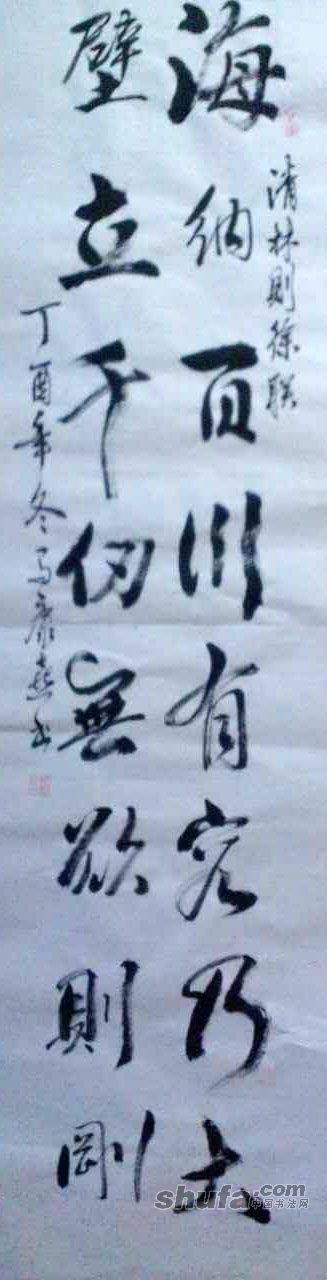 海納百川有容乃大
清林則徐联
壁立千仞無欲則剛
丁酉年冬马彦燕书
shufa.com
中国书法网